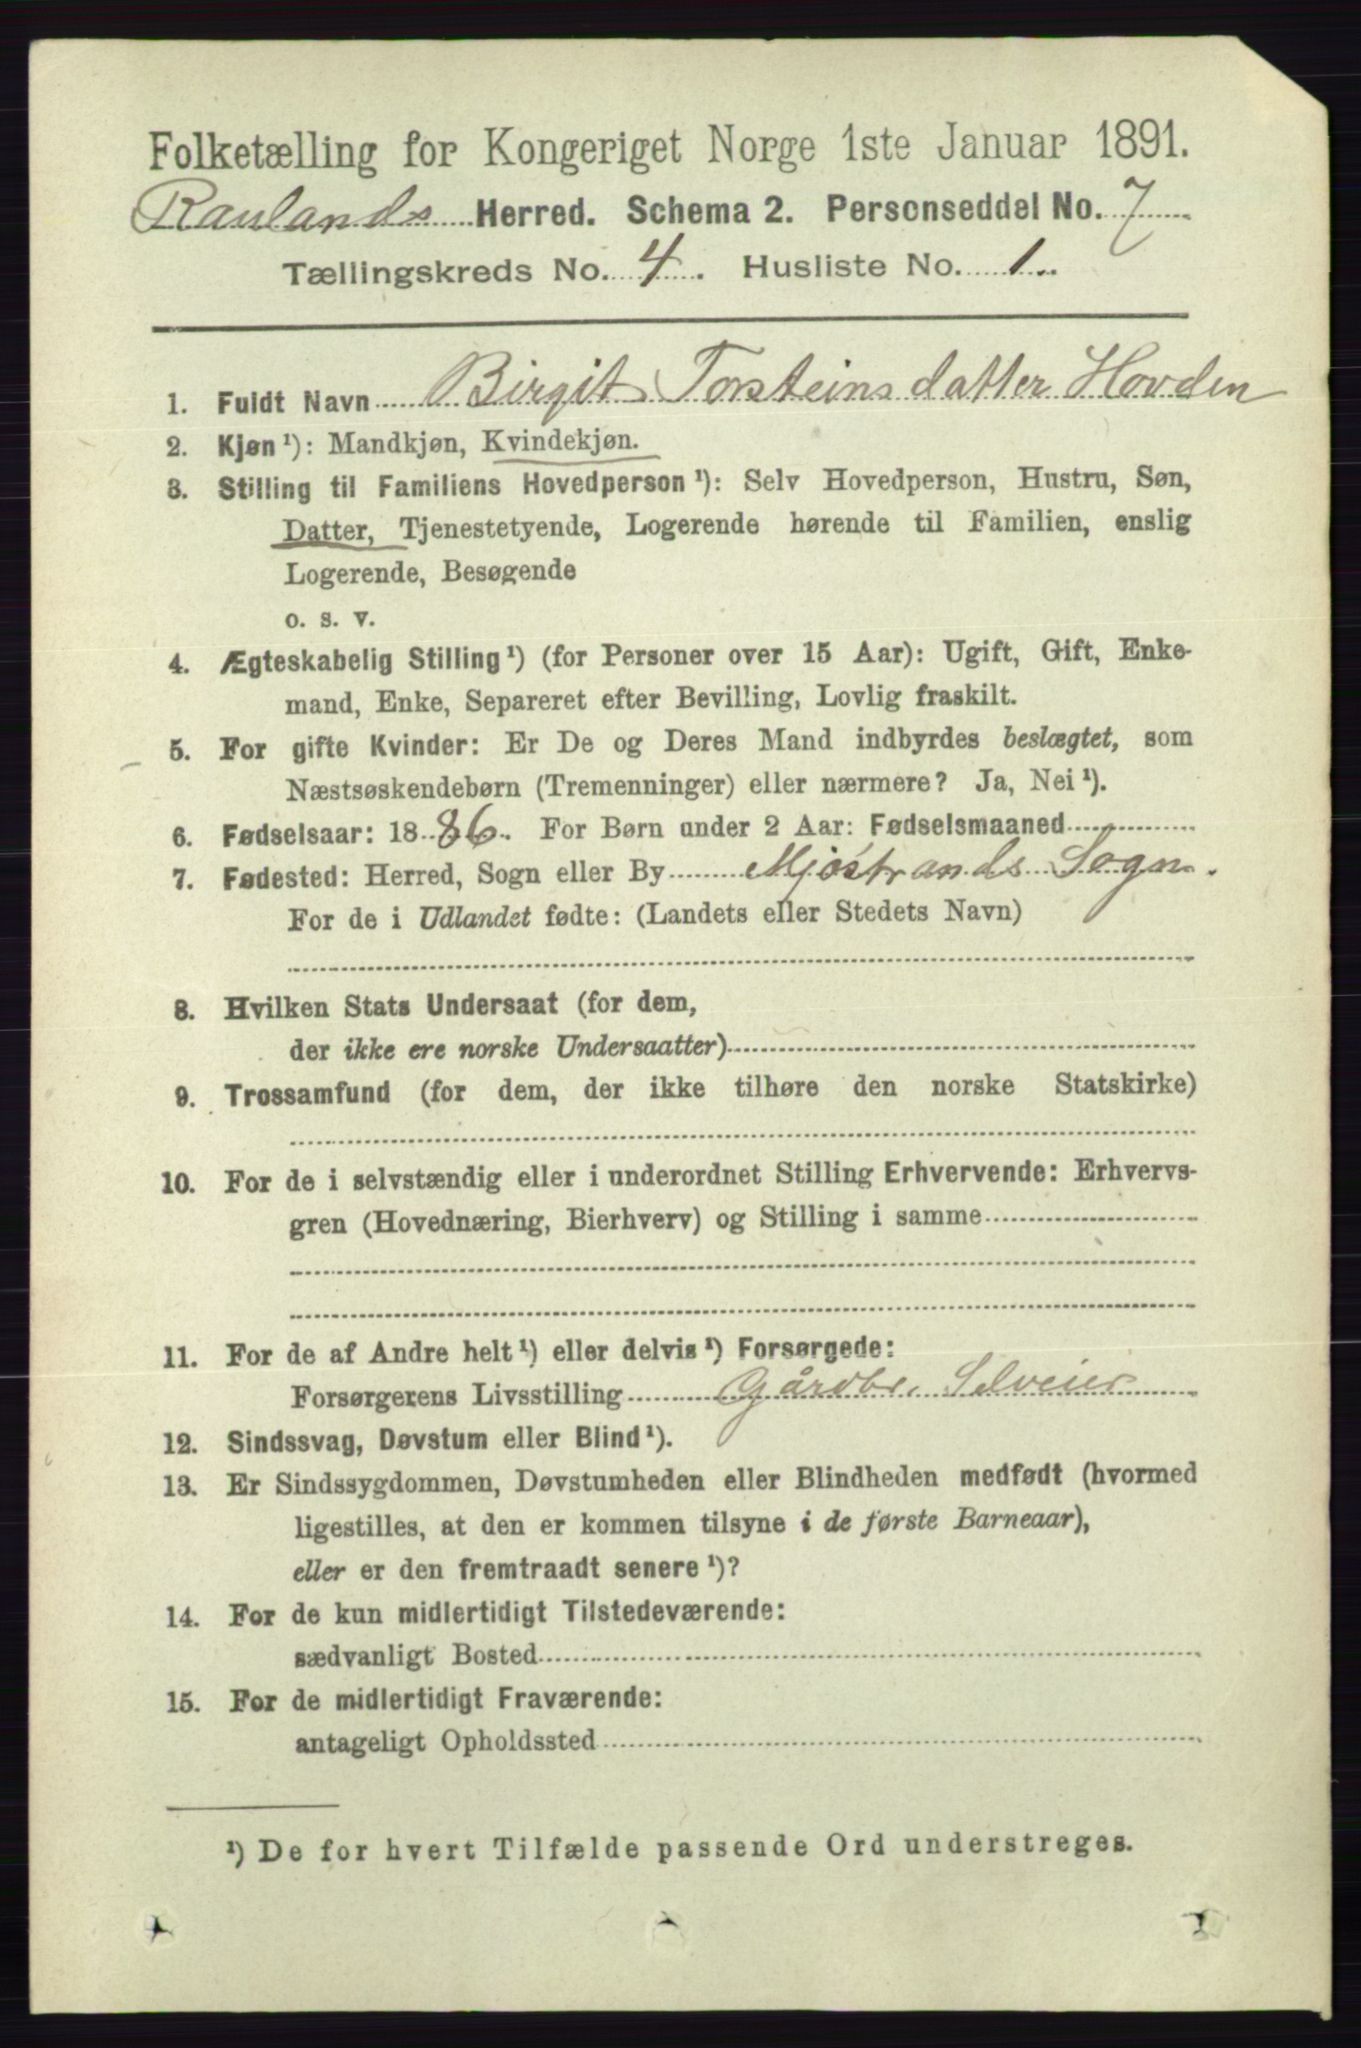 Folketælling for Kongeriget Norge 1ste Januar 1891.
Raulands Herred. Schema 2. Personseddel No. 7
Tællingskreds No. 4. Husliste No. 1.
1. Fuldt Navn Birgit Torsteinsdatter Hovden
2. Kjøn ¹): Mandkjøn, Kvindekjøn.
3. Stilling til Familiens Hovedperson ¹): Selv Hovedperson, Hustru, Søn,
Datter, Tjenestetyende, Logerende hørende til Familien, enslig
Logerende, Besøgende
o. s. v.
4. Ægteskabelig Stilling ¹) (for Personer over 15 Aar): Ugift, Gift, Enke-
mand, Enke, Separeret efter Bevilling, Lovlig fraskilt.
5. For gifte Kvinder: Er De og Deres Mand indbyrdes beslægtet, som
Næstsøskendebørn (Tremenninger) eller nærmere? Ja, Nei ¹).
6. Fødselsaar: 1886. For Børn under 2 Aar: Fødselsmaaned
7. Fødested: Herred, Sogn eller By Mjøstrands Sogn.
For de i Udlandet fødte: (Landets eller Stedets Navn)
8. Hvilken Stats Undersaat (for dem,
der ikke ere norske Undersaatter)
9. Trossamfund (for dem, der ikke tilhøre den norske Statskirke)
10. For de i selvstændig eller i underordnet Stilling Erhvervende: Erhvervs-
gren (Hovednæring, Bierhverv) og Stilling i samme
11. For de af Andre helt ¹) eller delvis ¹) Forsørgede:
Forsørgerens Livsstilling Gårdbr. Selveier
12. Sindssvag, Døvstum eller Blind ¹).
13. Er Sindssygdommen, Døvstumheden eller Blindheden medfødt (hvormed
ligestilles, at den er kommen tilsyne i de første Barneaar),
eller er den fremtraadt senere ¹)?
14. For de kun midlertidigt Tilstedeværende:
sædvanligt Bosted
15. For de midlertidigt Fraværende:
antageligt Opholdssted
¹) De for hvert Tilfælde passende Ord understreges.